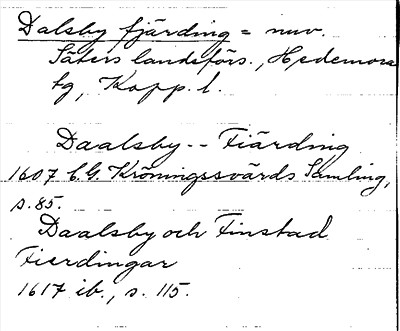 Dalsby fjärding = nuv.
Säters landsförs., Hedemora
tg, Kopp. l.
Daalsby -- Fiärding
1607 C.G. Kröningssvärds Samling,
s. 85.
Daalsby och Finstad
Fierdingar
1617 ib., s. 115.